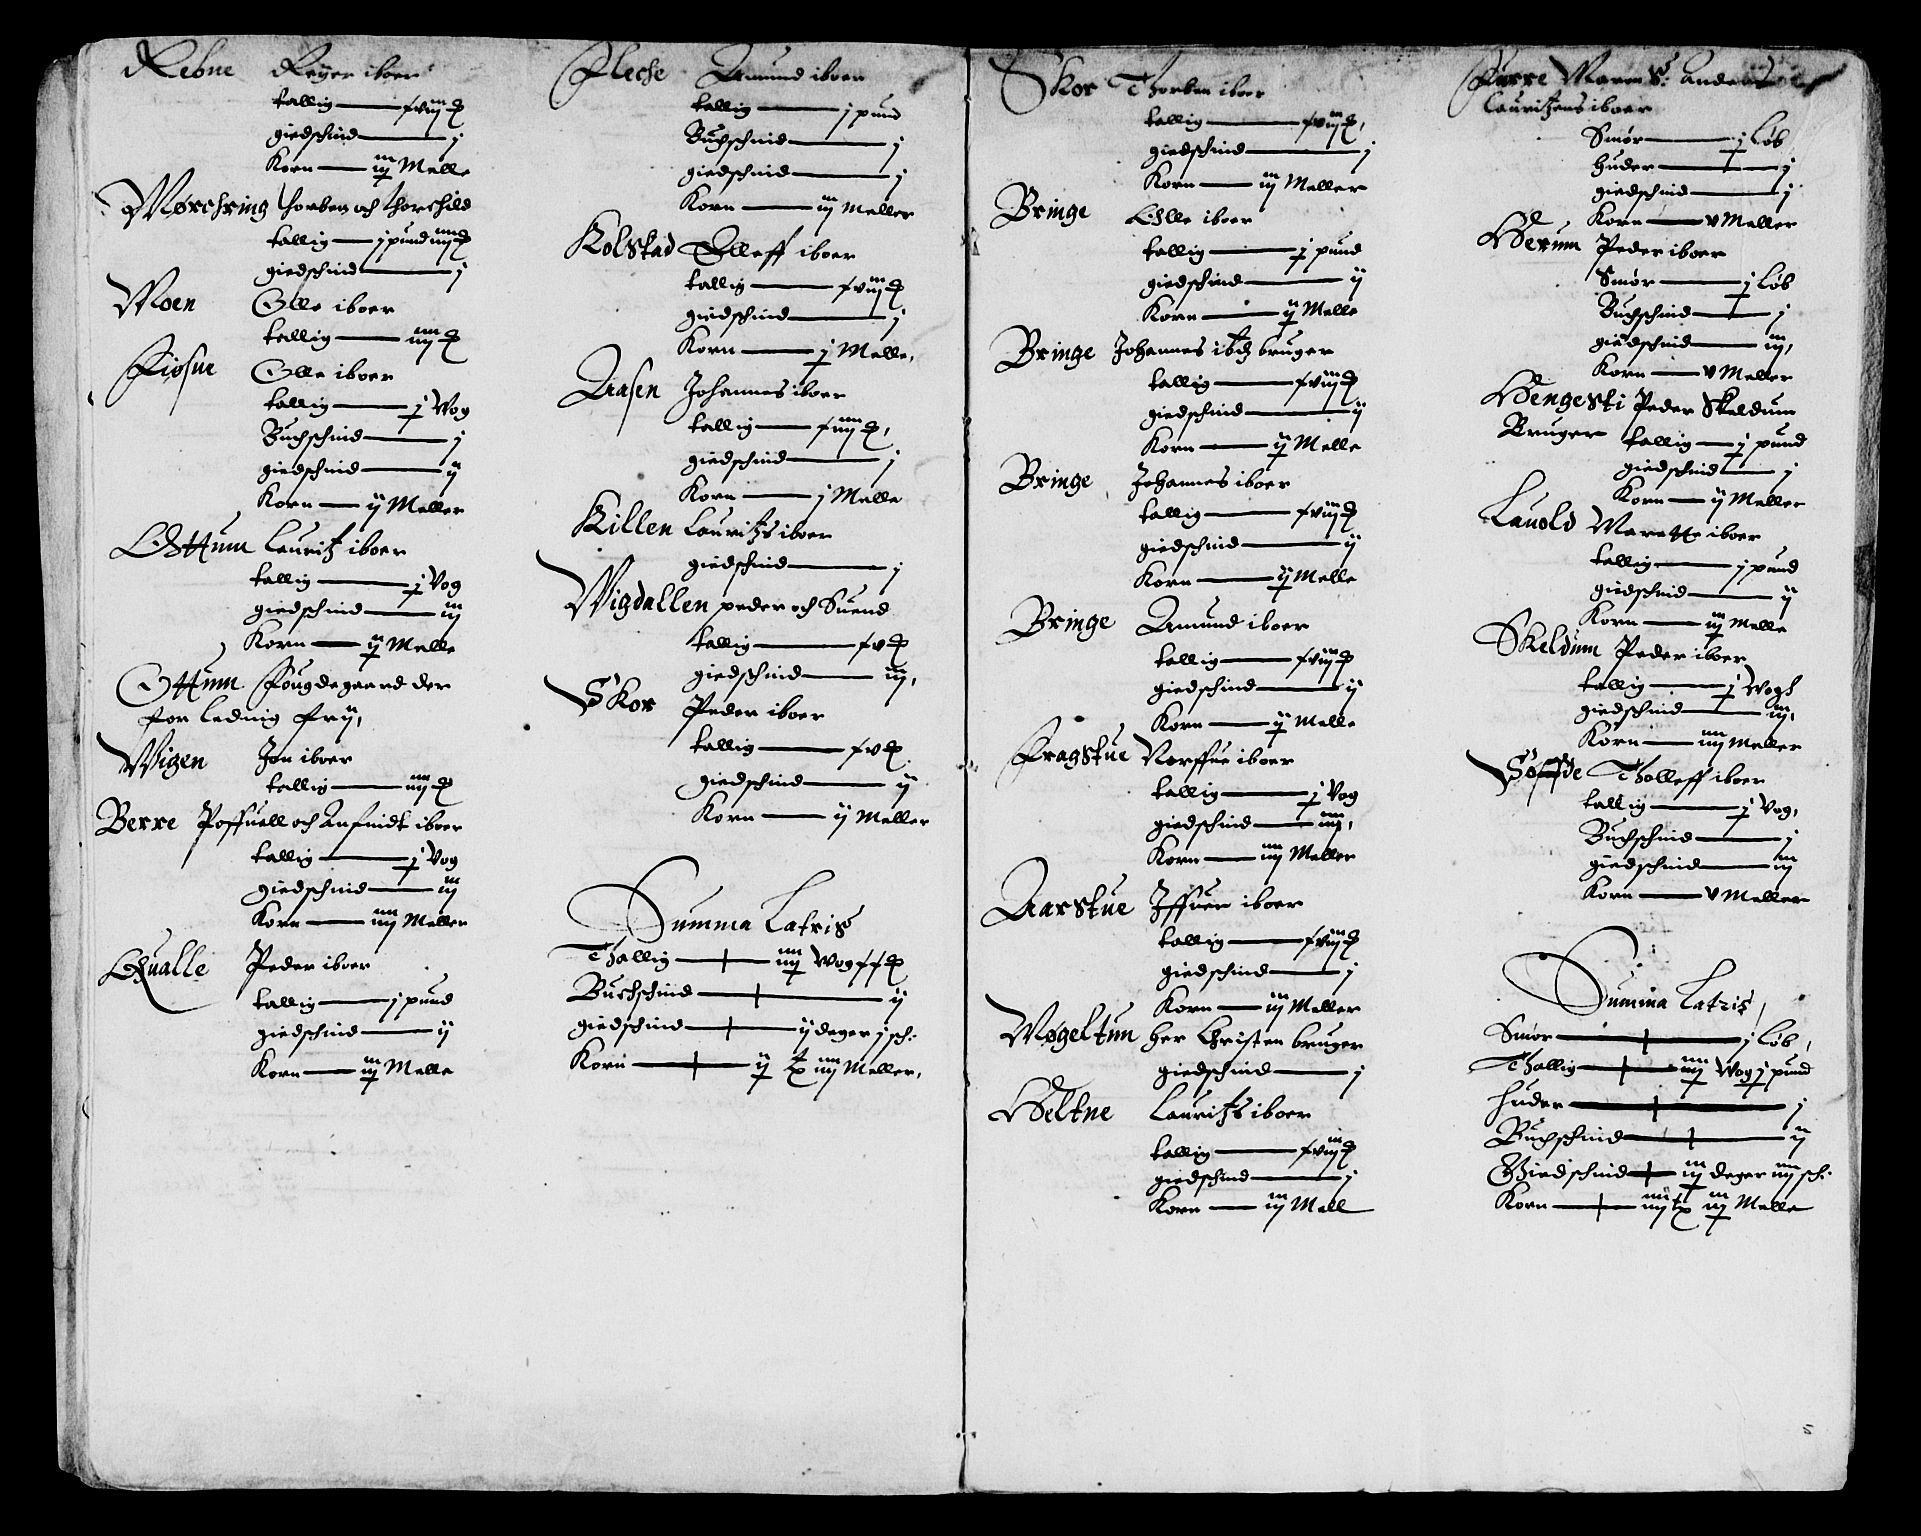 Rebne Reyer iboer
tallig — f viij ℔
giedschind — j
Korn — iij Melle
Mørchring thorben och thorchild
tallig — j pund iiij ℔
giedschind — j
Moen Olle iboer
tallig — iiij ℔
Fiosne Olle iboer
tallig — j Vog
Buchschind — j
giedschind — ij
Korn — ij Meller
Ottum Lauritz iboer
tallig — j Vog
giedschind — iij
Korn — ij Melle
Ottum Fougdegaard der
for lednig frij,
Wigen Jon iboer
tallig — iiij ℔
Berre Poffuell och Anfindt iboer
tallig — j Vog
giedschind — iij
Korn — iiij Meller
Qualle Peder iboer
tallig — j pund
giedschind — ij
Korn — iij Melle
Fleche Amund iboer
tallig — j pund
Buchschind — j
giedschind — j
Korn — iij Meller
Kolstad Olleff iboer
tallig — f viij ℔
giedschind — j
Korn — j Melle,
Aasen Johannes iboer
tallig — f iiij ℔,
giedschind — j
Korn — j Melle
Killen Lauritzs iboer
giedschind — j
Wigdallen peder och Suend
tallig — f v ℔
giedschind — iij,
Skor Peder iboer
tallig — f v ℔
giedschind — ij
Korn — ij Meller
Summa Latris
Thallig — iiij Vog f f ℔
Buchschind — ij
giedschind — ij deger j sch:
Korn — ij t iiij Meller,
Skor Thorben iboer
tallig — f viij ℔,
giedschind — j
Korn — iij Meller
Bringe Olle iboer
tallig — j pund
giedschind — ij
Korn — ij Melle
Bringe Johannes ibd bruger
tallig — f viij ℔
giedschind — ij
Korn — ij Melle
Bringe Johannes iboer
tallig — f viij ℔
giedschind — ij
Korn — ij Melle
Bringe Amund iboer
tallig — f viij ℔
giedschind — ij
Korn — ij Melle
Fragstue Narffue iboer
tallig — j Vog
giedschind — iiij,
Korn — iiij Meller
Aarstue Iffuer iboer
tallig — f viij ℔
giedschind — j
Korn — iij Meller
Møgeltun her Christen bruger
giedschind — j
Heltne Lauritzs iboer
tallig — f viij ℔
giedschind — j
Korn — iij Mell
Furre Maren S: Anders
Lauritzens iboer
Smør — j Løb
huder — j
giedschind — j
Korn — v Meller
Herum Peder iboer
Smør — j Løb
Buchschind — j
giedschind — iij,
Korn — v Meller
Hengesti Peder Skeldum
Bruger tallig — j pund
giedschind — j
Korn — ij Meller
Lauold Marette iboer
tallig — j pund
giedschind — ij
Korn — iij Melle
Skeldum Peder iboer
tallig — j Vogh
giedschind — iij,
Korn — iiij Meller
Søffde Tholleff iboer
tallig — j Vog,
Buchschind — j
giedschind — iij
Korn — v Meller
Summa Latris,
Smør — j Løb,
Thallig — iiij Vog j pund
huder — j
Buchschind — ij
Giedschind — iij deger iiij sch:
Korn — iiij t iij Melle
5